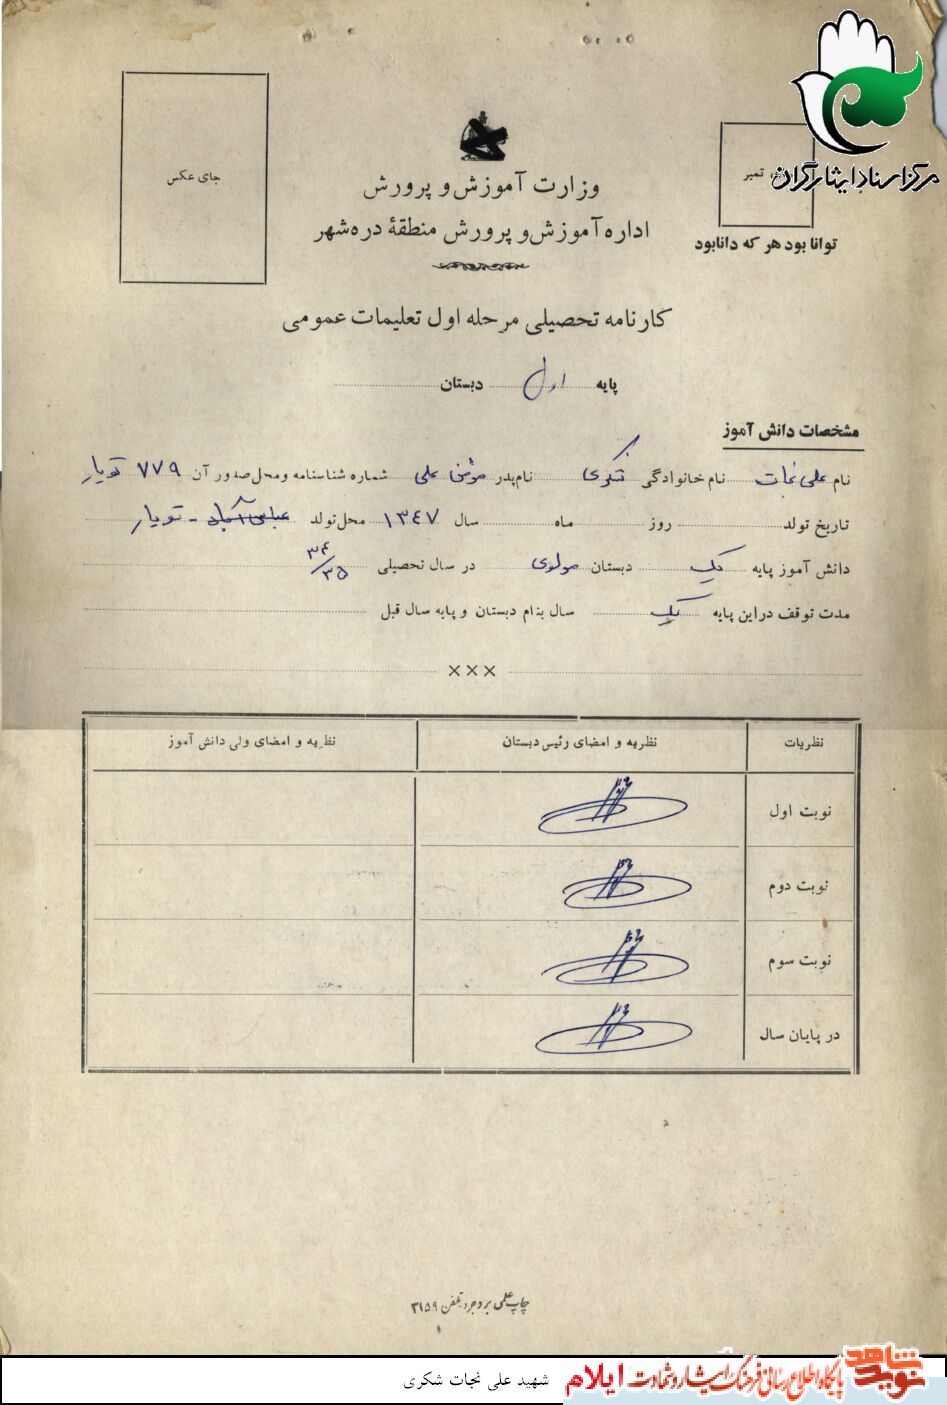 مرکز اسناد ایثارگران
جای عکس
تمبر
وزارت آموزش و پرورش
اداره آموزش و پرورش منطقهٔ دره‌شهر
توانا بود هر که دانا بود
کارنامه تحصیلی مرحله اول تعلیمات عمومی
پایه اول دبستان
مشخصات دانش آموز
نام علی نجات نام خانوادگی شکری نام پدر مؤمن علی شماره شناسنامه و محل صدور آن ۷۷۹
تاریخ تولد روز ماه سال ۱۳۴۷ محل تولد عباس آباد -
دانش آموز پایه یک دبستان مولوی در سال تحصیلی ۳۴/۳۵
مدت توقف در این پایه یک سال بنام دبستان و پایه سال قبل
×××
نظریات نظریه و امضای رئیس دبستان نظریه و امضای ولی دانش آموز
نوبت اول
نوبت دوم
نوبت سوم
در پایان سال
چاپ علمی بروجرد تلفن ۳۱۵۹
۱
نوید شاهد پایگاه اطلاع رسانی فرهنگ ایثار و شهادت ایلام شهید علی نجات شکری